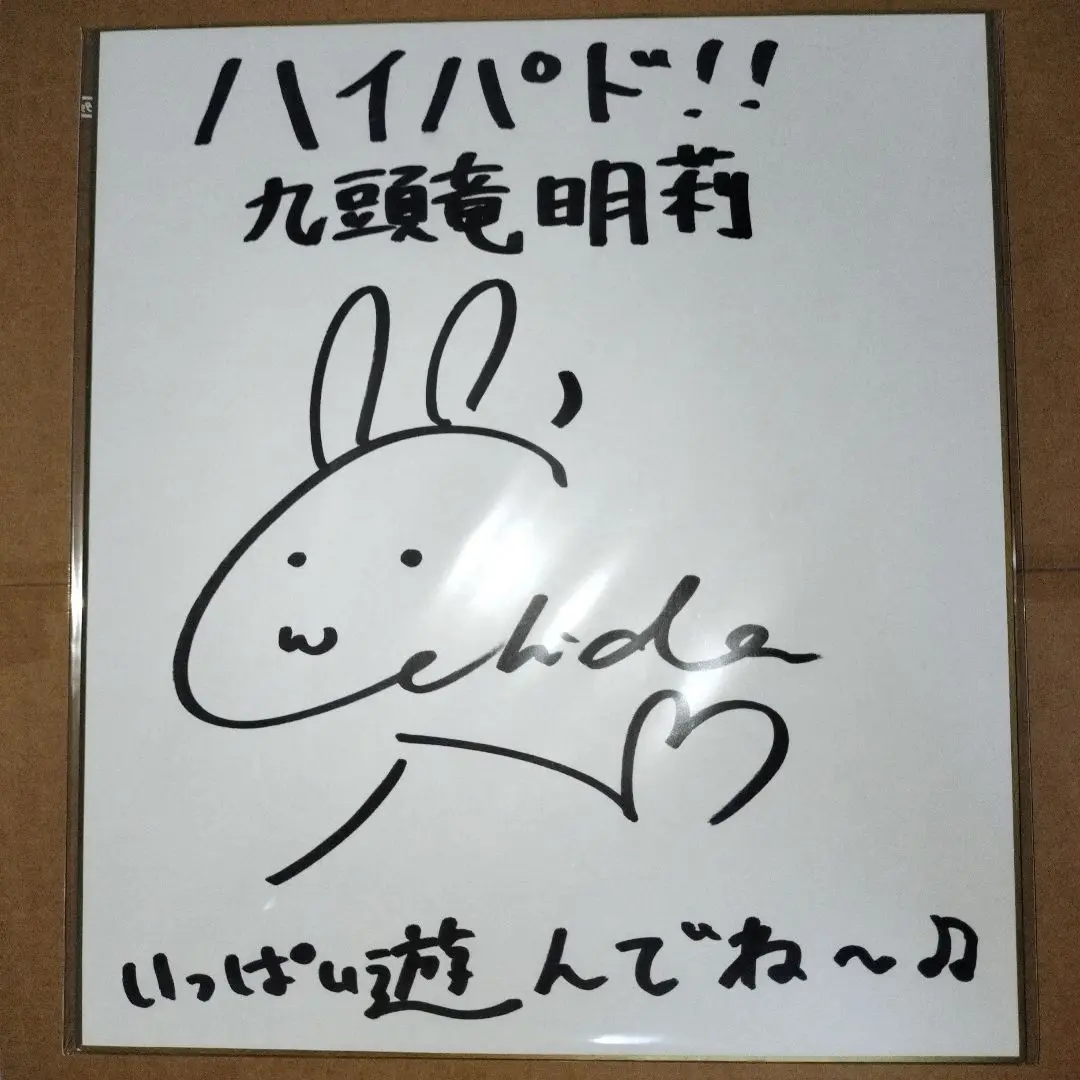 ハイパド!!
九頭竜明莉
いっぱい遊んでね〜♫